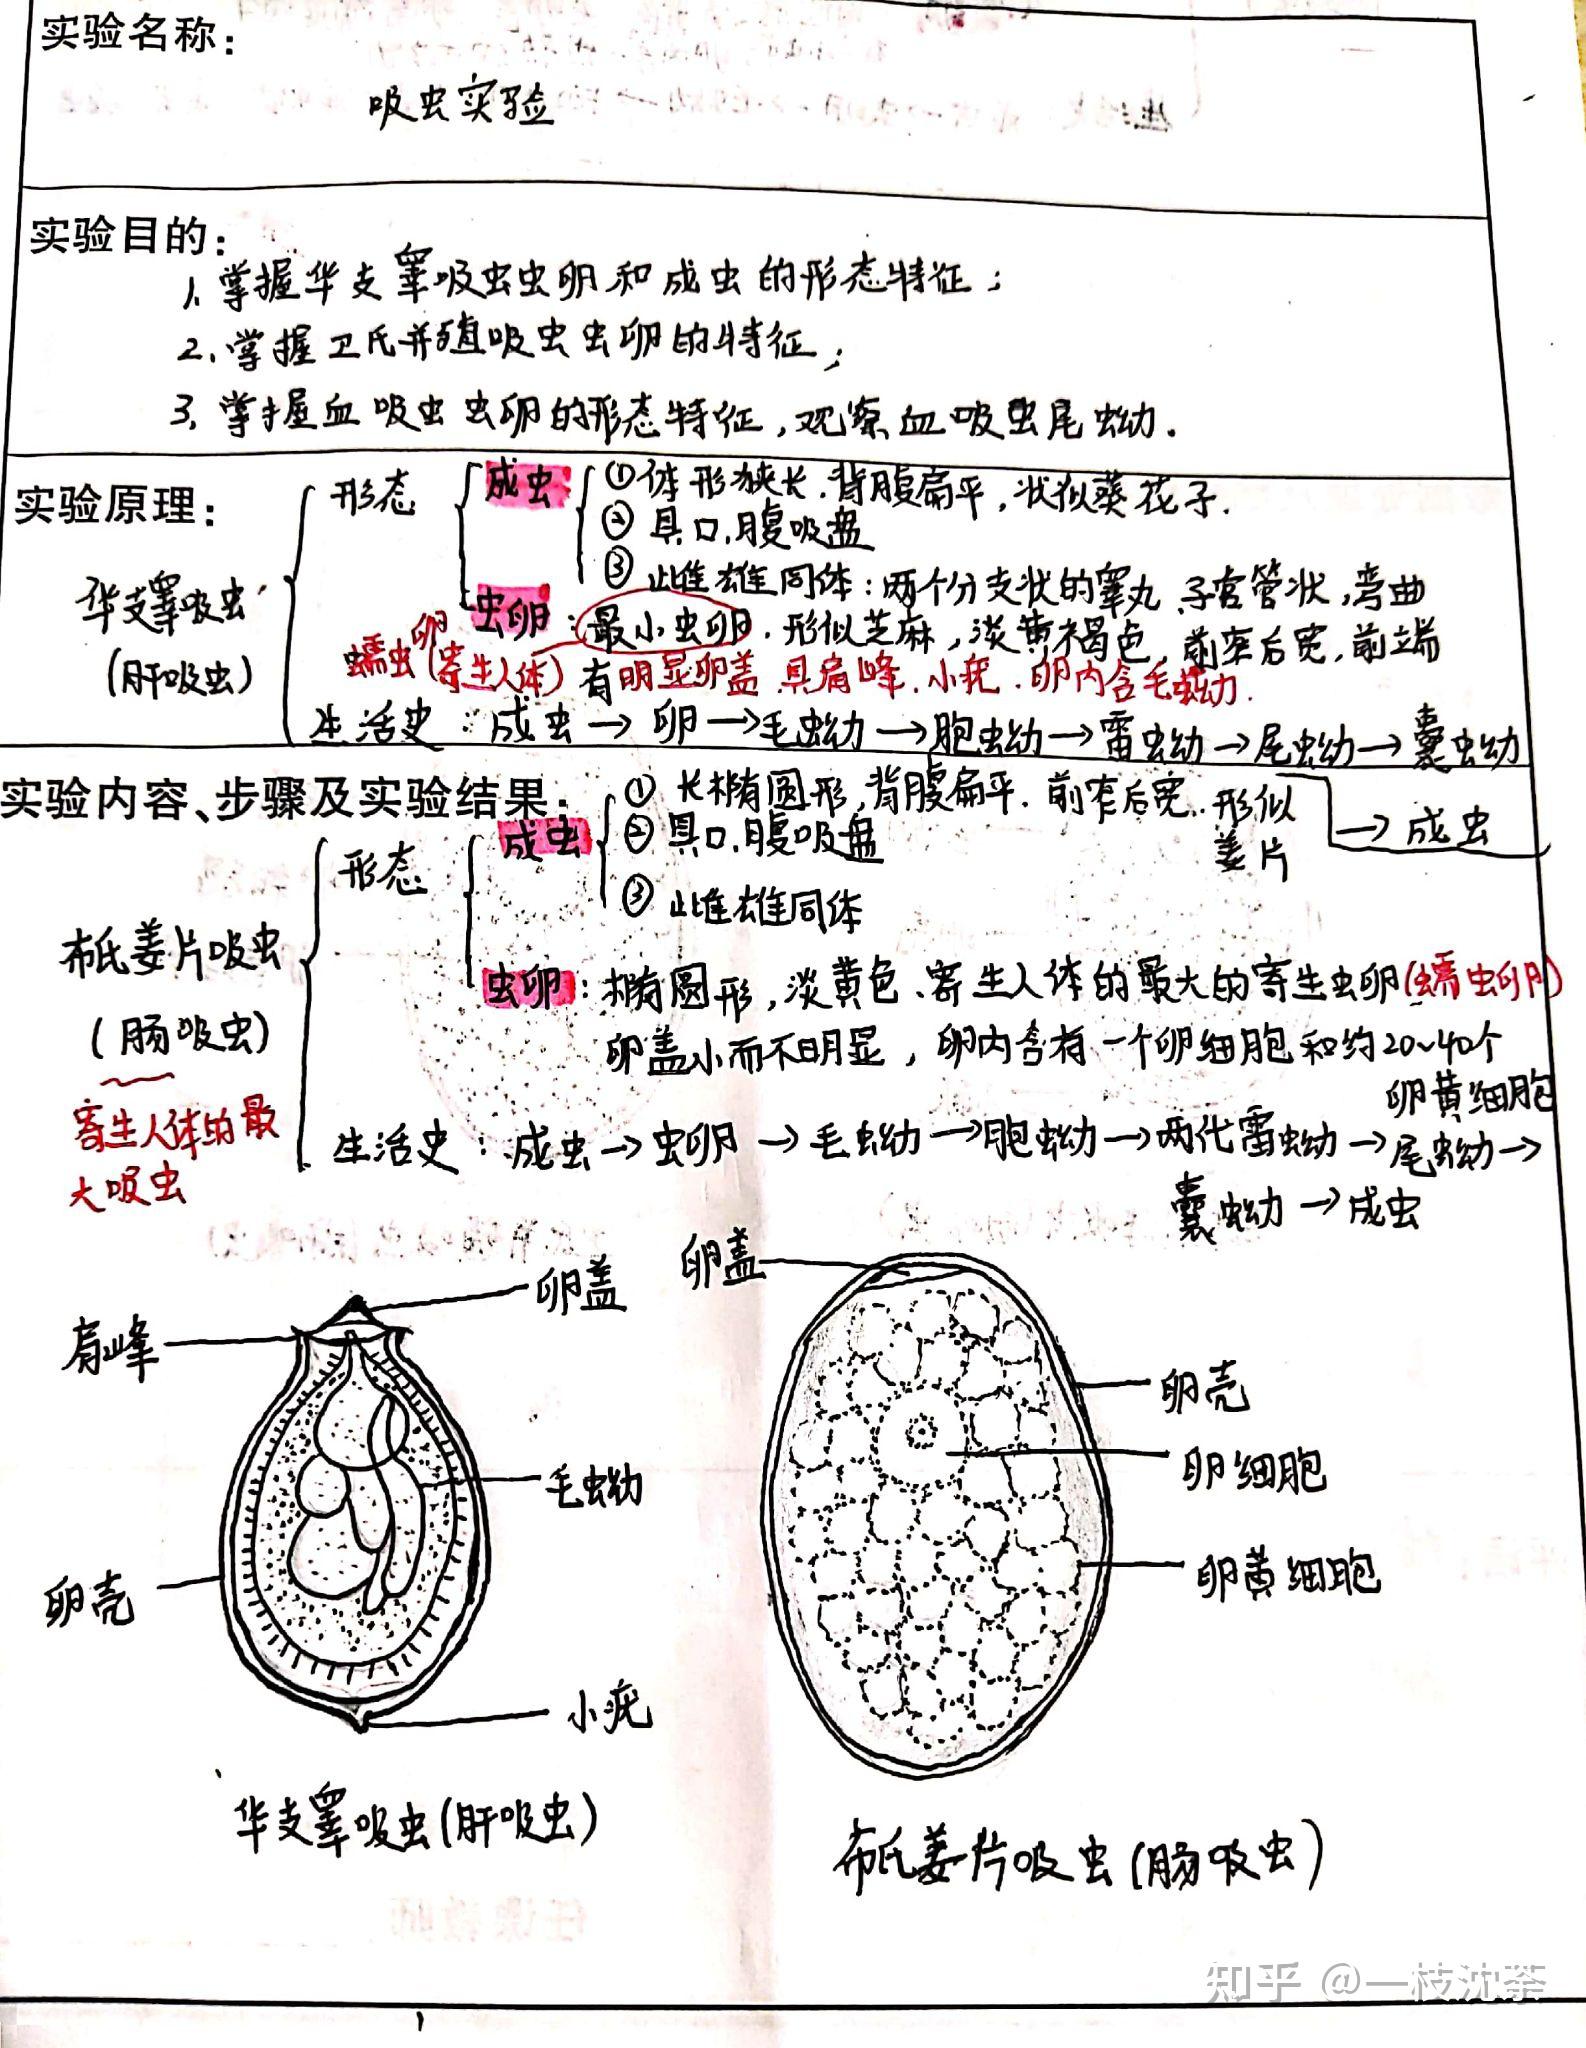 实验名称：
吸虫实验
实验目的：
1、掌握华支睾吸虫虫卵和成虫的形态特征；
2、掌握卫氏并殖吸虫虫卵的特征；
3、掌握血吸虫虫卵的形态特征，观察血吸虫尾蚴.
实验原理：
华支睾吸虫
(肝吸虫)
形态
成虫
①体形狭长.背腹扁平，状似葵花子.
② 具口.腹吸盘
③ 雌雄同体：两个分支状的睾丸.子宫管状，弯曲
虫卵：最小虫卵.形似芝麻，淡黄褐色，前窄后宽，前端
蠕虫卵(寄生人体)
有明显卵盖.具肩峰.小疣.卵内含毛蚴.
生活史：成虫→卵→毛蚴→胞蚴→雷蚴→尾蚴→囊蚴
→成虫
实验内容、步骤及实验结果：
布氏姜片吸虫
(肠吸虫)
寄生人体的最
大吸虫
形态
成虫
① 长椭圆形，背腹扁平.前窄后宽.形似
姜片
② 具口.腹吸盘
③ 雌雄同体
虫卵：椭圆形，淡黄色、寄生人体的最大的寄生虫卵(蠕虫卵)
卵盖小而不明显，卵内含有一个卵细胞和约20~40个
卵黄细胞
生活史：成虫→虫卵→毛蚴→胞蚴→两代雷蚴→尾蚴→
囊蚴→成虫
卵盖
肩峰
毛蚴
卵壳
小疣
华支睾吸虫(肝吸虫)
卵盖
卵壳
卵细胞
卵黄细胞
布氏姜片吸虫(肠吸虫)
知乎 @一枝沈荼